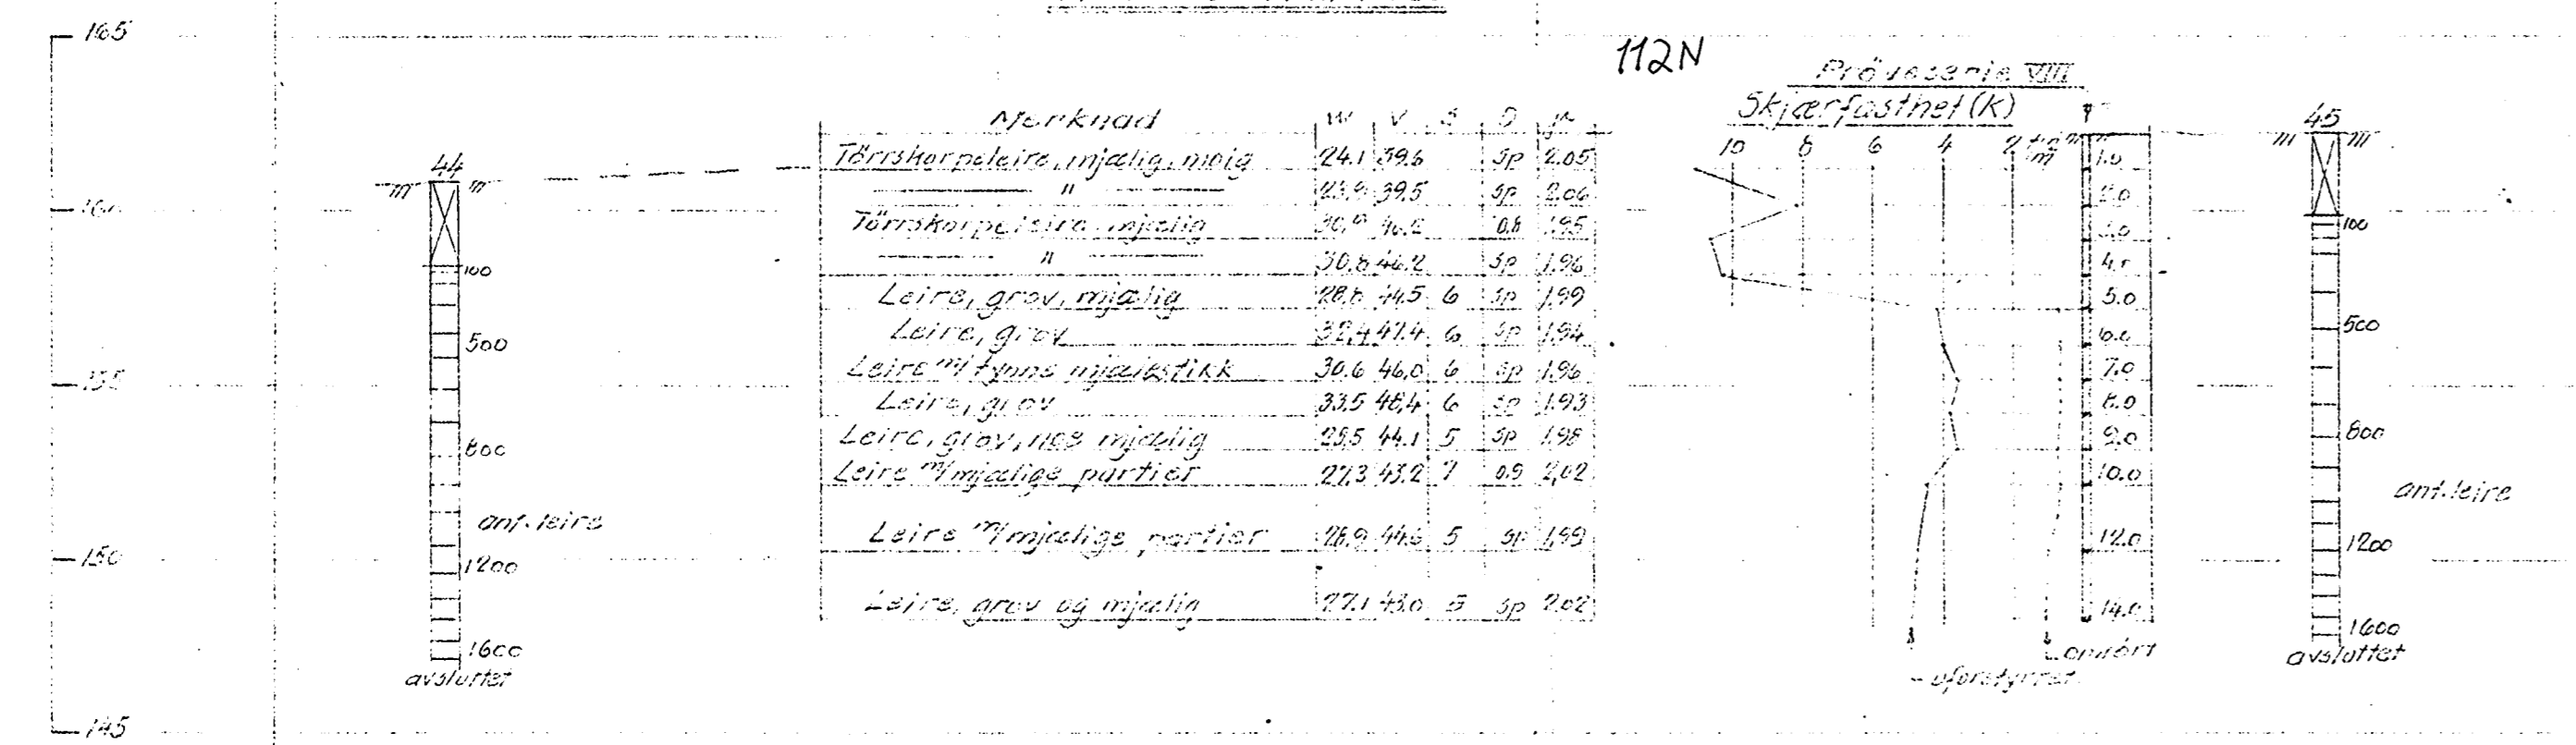 165
160
155
150
145
44
m m
100
500
800
ant. leire
1200
1600
avsluttet
Merknad W V S O
Törrskorpeleire, mjælig, moig 24.1 39.6 Sp 2.05
" 39.5 Sp 2.06
Törrskorpeleire mjælig 46.2 0.8 1.95
" 30.8 46.2 Sp 1.96
Leire, grov, mjælig 28.8 44.5 6 Sp 1.99
Leire, grov 32.4 47.4 6 Sp 1.94
Leire m/tynne mjælestikk 30.6 46.0 6 Sp 1.96
Leire, grov 33.5 48.4 6 Sp 1.93
Leire, grov, noe mjælig 28.5 44.1 5 Sp 1.98
Leire m/mjælige partier 27.3 43.2 7 0.9 2.02
Leire m/mjælige partier 28.9 44.6 5 Sp 1.99
Leire, grov og mjælig 27.1 43.0 5 Sp 2.02
112N
Pröveserie VIII
Skjærfasthet (K)
10 8 6 4 2
1.0
2.0
3.0
4.0
5.0
6.0
7.0
8.0
9.0
10.0
12.0
14.0
omrört
uforstyrret
45
m m
100
500
800
ant. leire
1200
1600
avsluttet